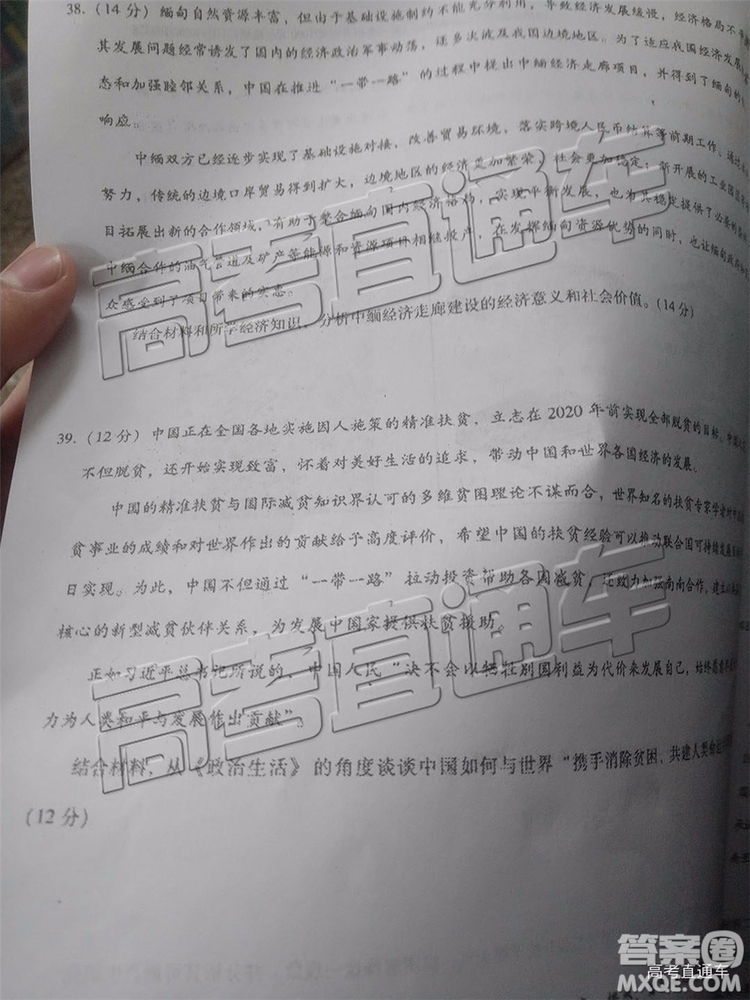 38. (14分) 缅甸自然资源丰富，但由于基础设施制约不能充分利用，导致经济发展缓慢，经济格局不
其发展问题经常诱发了国内的经济政治军事动荡，逐多次波及我国边境地区。为了适应我国经济发展
态和加强睦邻关系，中国在推进“一带一路”的过程中提出中缅经济走廊项目，并得到了缅甸的
响应。
中缅双方已经逐步实现了基础设施对接，改善贸易环境，落实跨境人民币结算等前期工作。通过
努力，传统的边境口岸贸易得到扩大，边境地区的经济更加繁荣，社会更加稳定；新开展的工业园区
目拓展出新的合作领域，有助于整合缅甸国内经济格局，实现平衡发展，也为其稳定提供了必要的
中缅合作的油气管道及矿产等能源和资源项目相继投产，在发挥缅甸资源优势的同时，也让缅甸政府
众感受到了项目带来的实惠。
结合材料和所学经济知识，分析中缅经济走廊建设的经济意义和社会价值。(14分)
39. (12分) 中国正在全国各地实施因人施策的精准扶贫，立志在2020年前实现全部脱贫的目标。
不但脱贫，还开始实现致富，怀着对美好生活的追求，带动中国和世界各国经济的发展。
中国的精准扶贫与国际减贫知识界认可的多维贫困理论不谋而合，世界知名的扶贫专家学者
贫事业的成绩和对世界作出的贡献给予高度评价，希望中国的扶贫经验可以推动联合国可持续发展
日实现。为此，中国不但通过“一带一路”拉动投资帮助各国减贫，还致力加强南南合作，建立
核心的新型减贫伙伴关系，为发展中国家提供扶贫援助。
正如习近平总书记所说的，中国人民“决不会以牺牲别国利益为代价来发展自己，始终愿意
力为人类和平与发展作出贡献”。
结合材料，从《政治生活》的角度谈谈中国如何与世界“携手消除贫困，共建人类命运
(12分)
高考直通车
高考直通车
答案圈
高考直通车
MXQE.COM